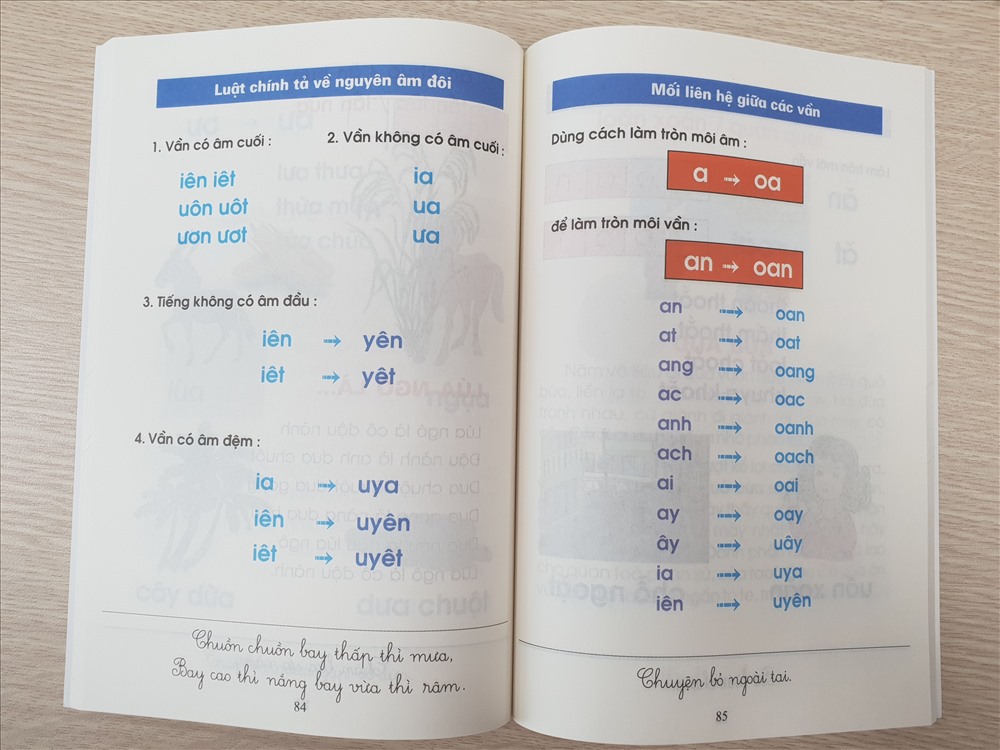 Luật chính tả về nguyên âm đôi
1. Vần có âm cuối :
2. Vần không có âm cuối :
iên iêt
ia
uôn uôt
ua
ươn ươt
ưa
3. Tiếng không có âm đầu :
iên → yên
iêt → yêt
4. Vần có âm đệm :
ia → uya
iên → uyên
iêt → uyêt
Chuồn chuồn bay thấp thì mưa,
Bay cao thì nắng bay vừa thì râm.
84
Mối liên hệ giữa các vần
Dùng cách làm tròn môi âm :
a → oa
để làm tròn môi vần :
an → oan
an → oan
at → oat
ang → oang
ac → oac
anh → oanh
ach → oach
ai → oai
ay → oay
ây → uây
ia → uya
iên → uyên
Chuyện bỏ ngoài tai.
85